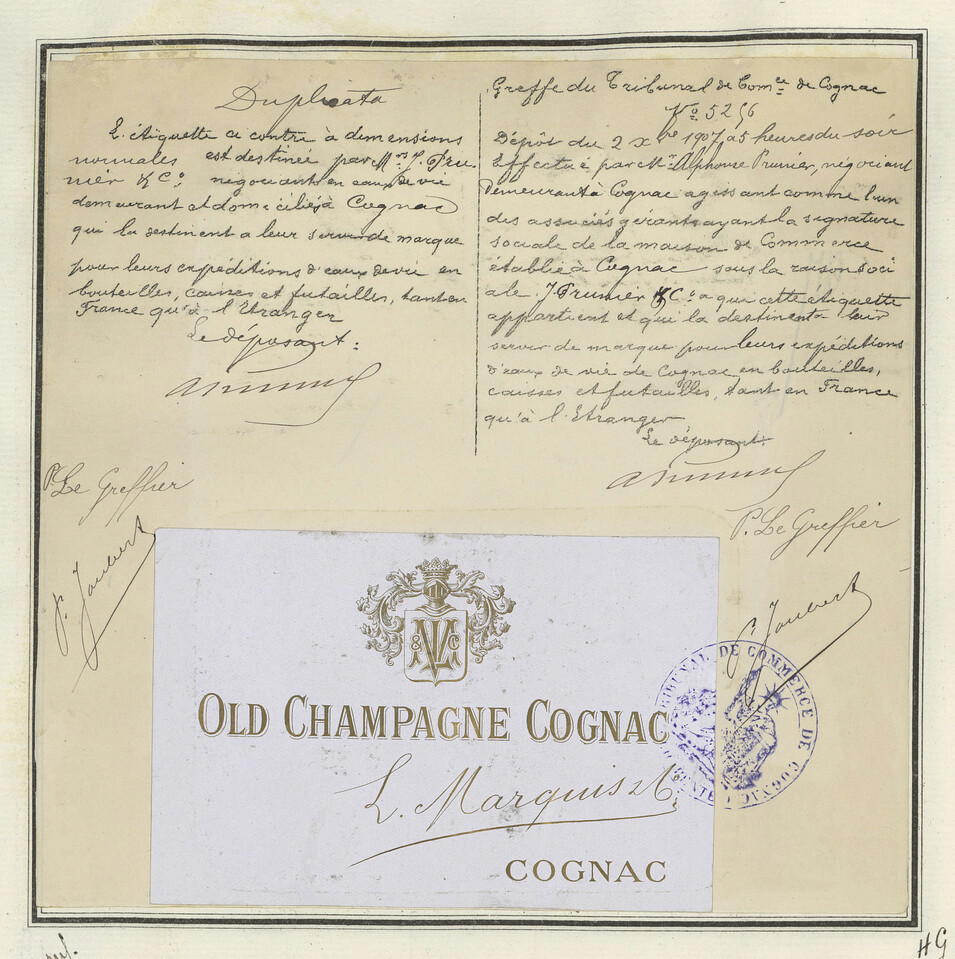 Duplicata
L'étiquette ci contre à dimensions
normales est destinée par Mrs J. Pru
nier & Co. négociant en eaux de vie
demeurant et domiciliés à Cognac
qui la destinent a leur servir de marque
pour leurs expéditions d'eaux de vie en
bouteilles, caisses et futailles, tant en
France qu'à l'Etranger
Le déposant:
P. Le Greffier
P. Joubert
Greffe du Tribunal de Comce de Cognac
No. 5256
Dépôt du 2 Xbre 1907, a 5 heures du soir
Effectué par Mr. Alphonse Prunier, négociant
Demeurant à Cognac agissant comme l'un
des associés gérants ayant la signature
sociale de la maison de Commerce
établie à Cognac sous la raison soci
ale J. Prunier & Co. a qui cette étiquette
appartient et qui la destinent à leur
servir de marque pour leurs expéditions
d'eaux de vie de Cognac en bouteilles,
caisses et futailles, tant en France
qu'à l'Etranger
Le déposant.
P. Le Greffier
P. Joubert
LM & Co
OLD CHAMPAGNE COGNAC
L. Marquis & Co.
COGNAC
TRIBUNAL DE COMMERCE DE COGNAC
HG